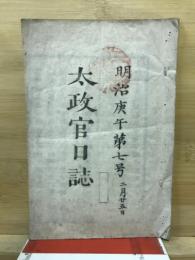 明治庚午第七号 二月廿五日
太政官日誌